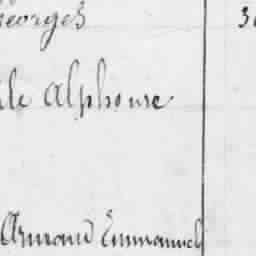 Georges 3
le Alphonse
Armand Emmanuel